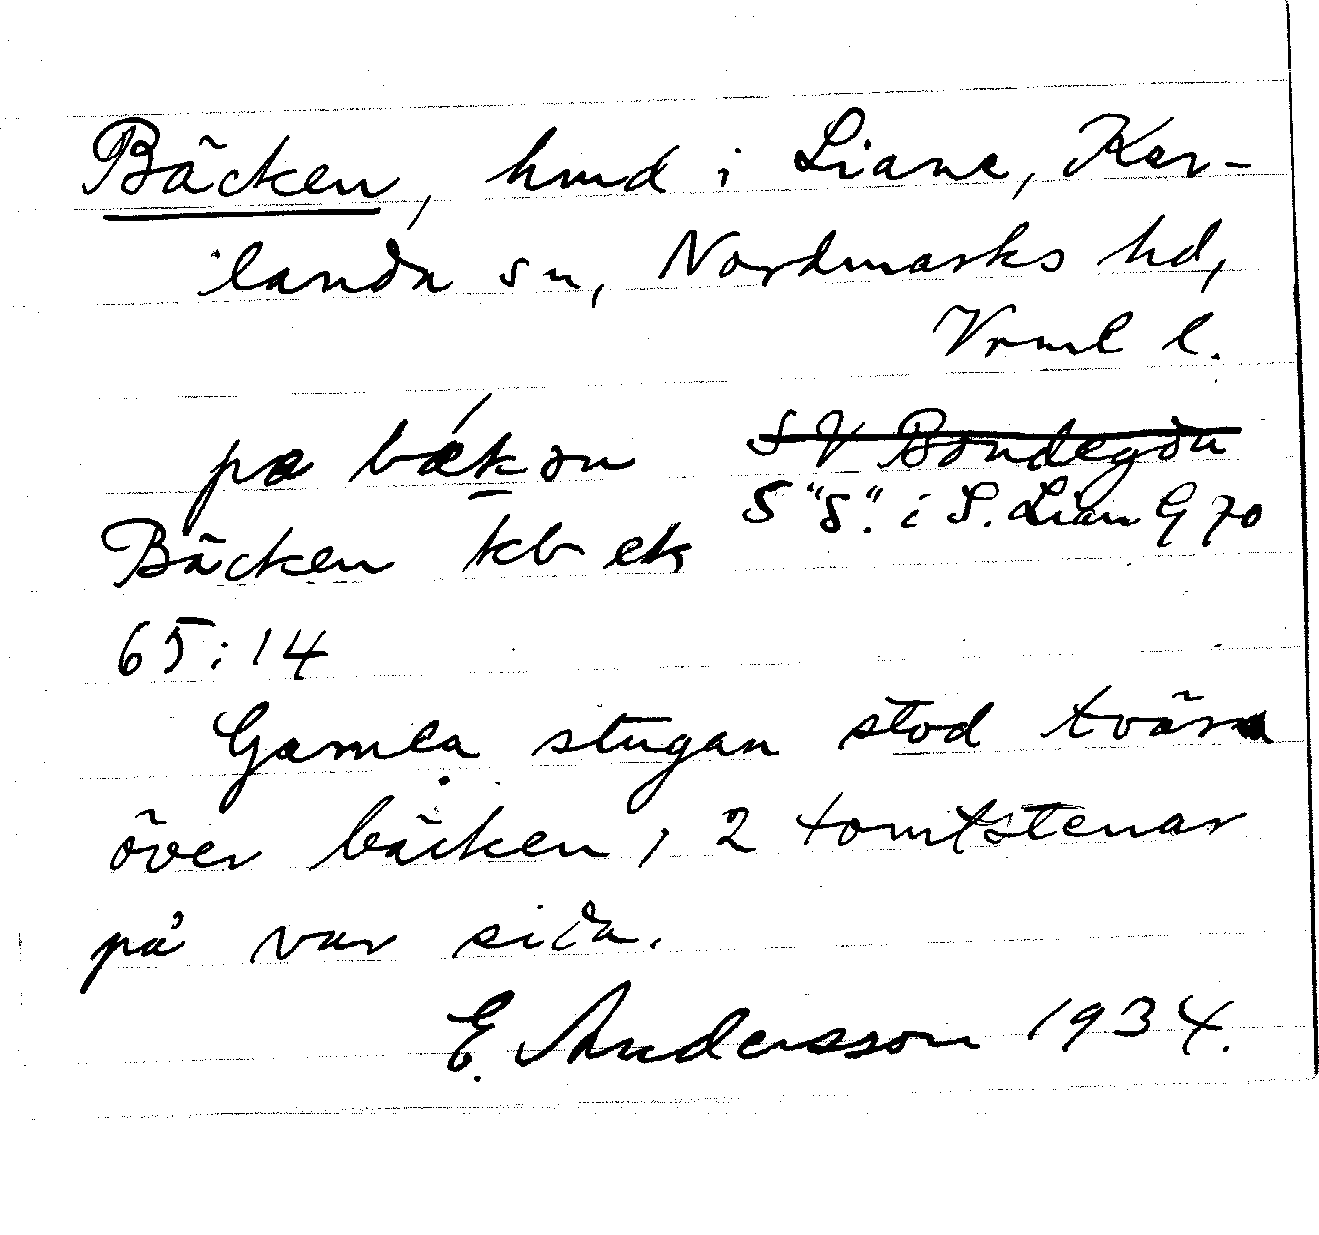 Bäcken, hmd i Liane, Kar-
landa sn, Nordmarks hd,
Vrml l.
pæ bǽkən
S "S". i S. Lian G 70
Bäcken kb ek
65:14
Gamla stugan stod tvärs
över bäcken, 2 tomtstenar
på var sida.
E. Andersson 1934.